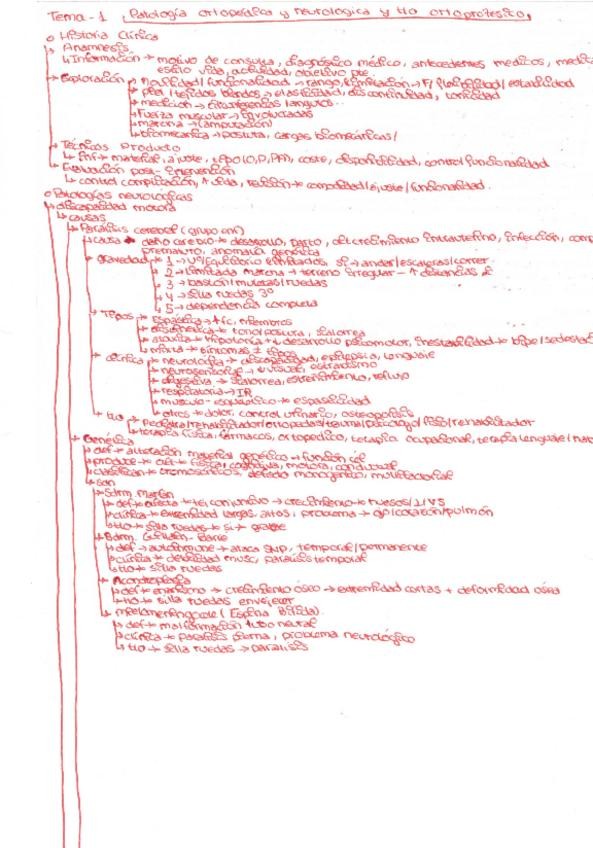 Tema-1 Patología ortopédica y neurológica y tto ortoprotésico.
Historia clínica
Anamnesis
Información → motivo de consulta, diagnóstico médico, antecedentes médicos,
estilo vida, actividad, objetivo pte.
Exploración → movilidad/funcionalidad → rango/limitación → F/flexibilidad/estabilidad
piel/tejidos blandos → elasticidad, discontinuidad, toxicidad
medición → circunferencias/ángulos..
fuerza muscular → involucradas
marcha → (amputación)
biomecánica → postura, cargas biomecánicas/
Técnicas Producto
Inf → material, ajuste, tipo (O,P,PM), coste, disponibilidad, control funcionalidad
Evaluación post-intervención
control complicación, ↑ vida, revisión → comodidad/ajuste/funcionalidad.
Patologías neurológicas
discapacidad motora
causas
Parálisis cerebral (grupo enf)
causa → daño cerebro → desarrollo, parto, del crecimiento intrauterino, infección,
prematuro, anomalía genética
gravedad → 1 → equilibrio limitados, sí → andar/escaleras/correr
2 → limitada marcha → terreno irregular - ↑ distancias
3 → bastón/muletas/ruedas
4 → silla ruedas 3º
5 → dependencia completa
Tipos → Espástica → miembros
→ tono/postura, sialorrea
ataxia → hipotonía + ↓ desarrollo psicomotor, inestabilidad →
mixta → síntomas ± tipos
clínica → neurología → discapacidad, epilepsia, lenguaje
neurosensorial → ↓ visual, estrabismo
digestiva → sialorrea, estreñimiento, reflujo
respiratoria → IR
musculo-esquelético → espasticidad
otros → dolor, control urinario, osteoporosis
tto → Pediatra/rehabilitador/ortopedas/trauma/psicólogo/fisio/rehabilitador
terapia física, fármacos, ortopédico, terapia ocupacional, terapia lenguaje/
Genética
def → alteración material genético → función cél
produce → def → física, cognitiva, motora, conductual
clasificación → cromosómicos, defecto monogénico, multifactorial
son
Sdrm. Marfan
def → afecta → tej conjuntivo → crecimiento → huesos/
clínica → extremidad largas, altos, problema → ojo/corazón/pulmón
tto → silla ruedas → si → grave
Sdrm. Guillain-Barré
def → autoinmune → ataca SNP, temporal/permanente
clínica → debilidad musc, parálisis temporal
tto → silla ruedas
Acondroplasia
def → enanismo → crecimiento óseo → extremidad cortas + deformidad ósea
tto → silla ruedas envejecer
Mielomeningocele (Espina Bífida)
def → malformación tubo neural
clínica → parálisis pierna, problema neurológico
tto → silla ruedas → parálisis